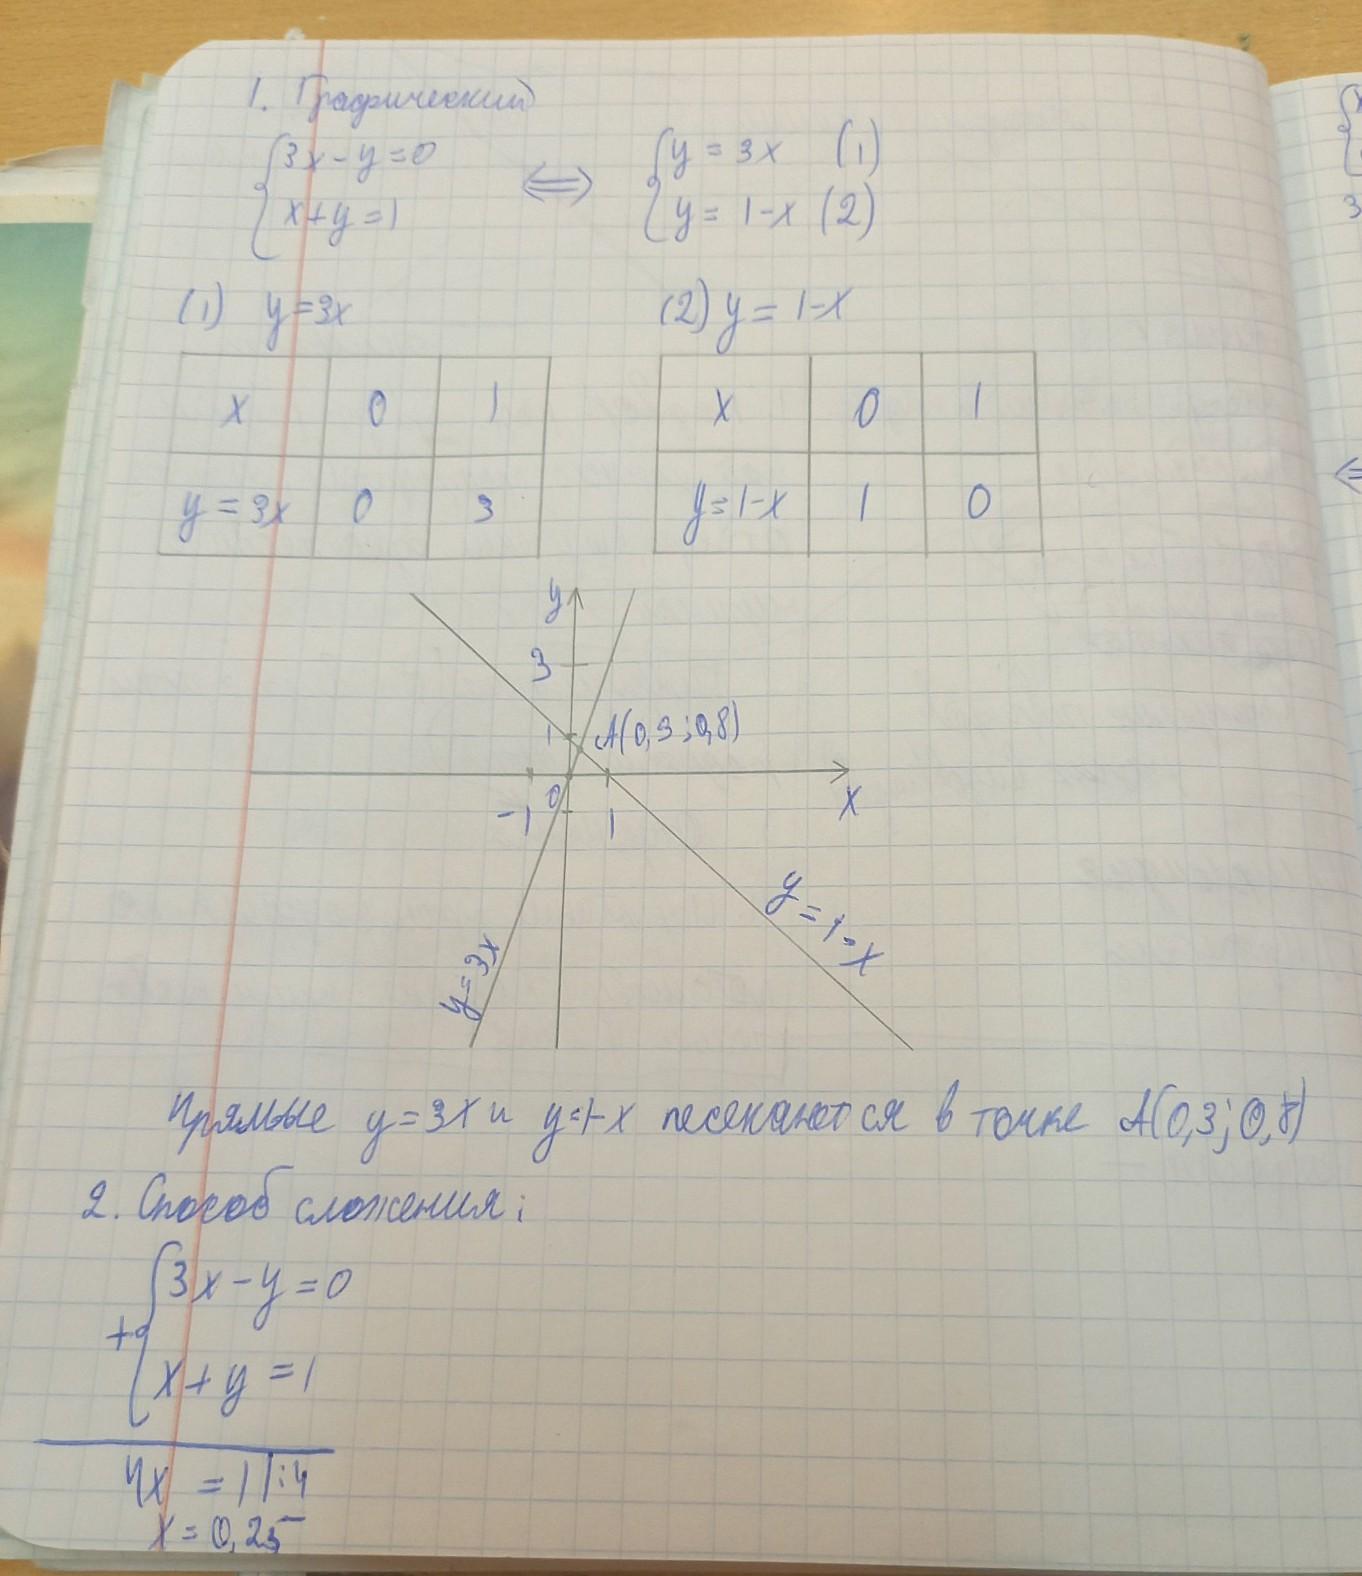 1. Графический
{3x-y=0 ⟺ {y=3x (1)
{x+y=1 {y=1-x (2)
(1) y=3x (2) y=1-x
x 0 1 x 0 1
y=3x 0 3 y=1-x 1 0
y
3
1 A(0,3;0,8)
0
-1 1 x
y=3x y=1-x
Прямые y=3x и y=1-x песекаются в точке A(0,3;0,8)
2. Способ сложения:
+{3x-y=0
{x+y=1
4x =1 |:4
x=0,25
3